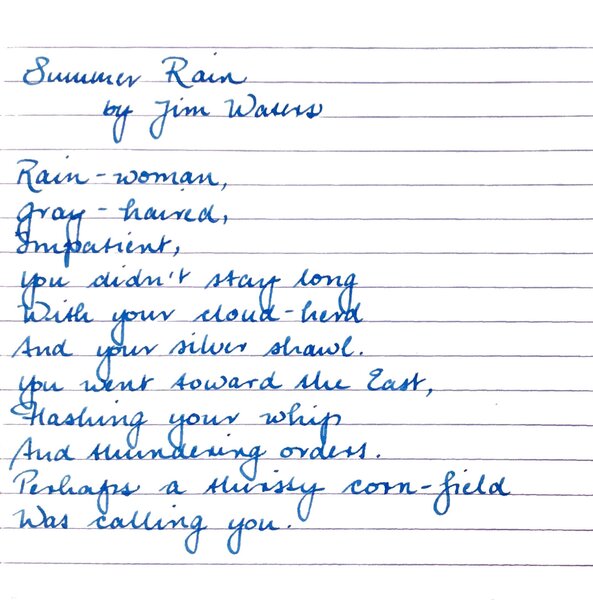 Summer Rain
by Jim Waters
Rain-woman,
Gray-haired,
Impatient,
You didn't stay long
With your cloud-herd
And your silver shawl.
You went toward the East,
Flashing your whip
And thundering orders.
Perhaps a thirsty corn-field
Was calling you.